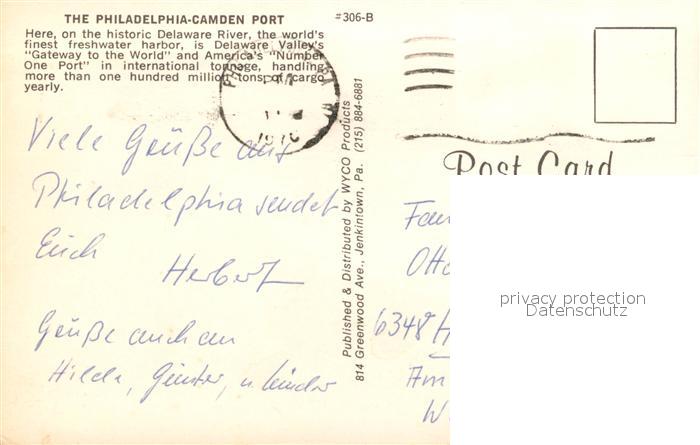 THE PHILADELPHIA-CAMDEN PORT
#306-B
Here, on the historic Delaware River, the world's
finest freshwater harbor, is Delaware Valley's
"Gateway to the World" and America's "Number
One Port" in international tonnage, handling
more than one hundred million tons of cargo
yearly.
1976
Viele Grüße aus
Philadelphia sendet
Euch
Herbert
Grüße auch an
Hilde, Günter, u. Kinder
Published & Distributed by WYCO Products
814 Greenwood Ave., Jenkintown, Pa. (215) 884-6881
Post Card
Fam
Otto
6348 H
Am
W
privacy protection
Datenschutz